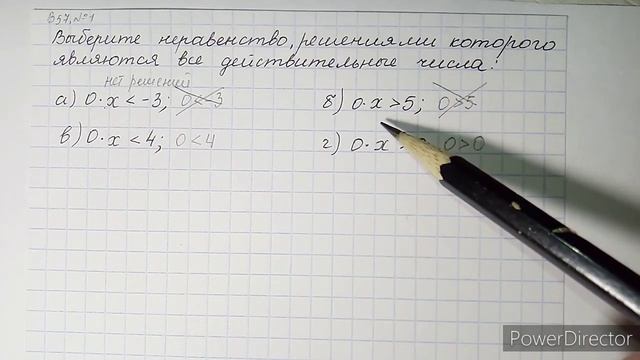 В57, №1
Выберите неравенство, решениями которого
являются все действительные числа:
нет решений
а) 0·x < -3; 0 < -3 б) 0·x > 5; 0 > 5
в) 0·x < 4; 0 < 4 г) 0·x > 0 > 0
PowerDirector